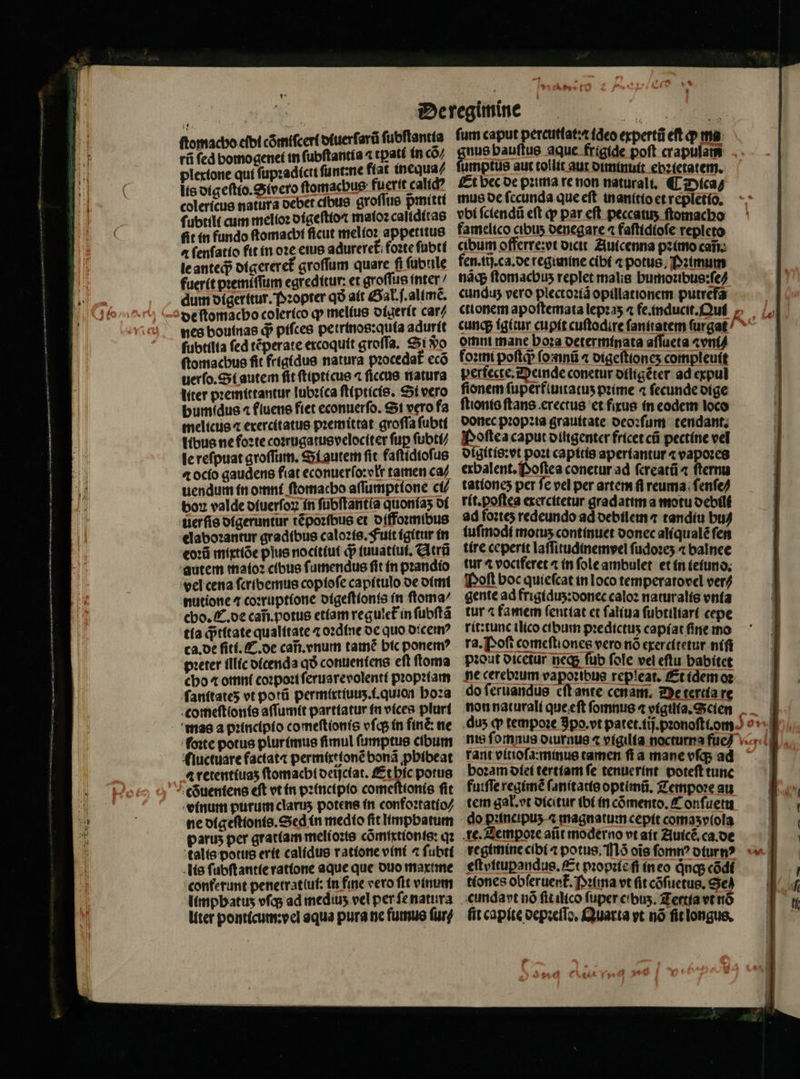 De regimine
stomacho cibi cõmisceri diuersarũ substantia
rũ sed homogenei in substantia ⁊ tpati in cõ/
plexione qui supradicti sunt:ne fiat inequa/
lis digestio.Si vero stomachus fuerit calidꝰ
colericus natura debet cibus grossus p̃mitti
subtili cum melior digestior maior caliditas
fit in fundo stomachi sicut melior appetitus
⁊ sensatio fit in ore eius adureret᷑ forte subti
le anteq̃ digereret᷑ grossum quare si subtile
fuerit premissum egreditur: et grossus inter/
dum digeritur.Propter qd̓ ait Gal.ſ.alimẽ.
de stomacho colerico ꝙ melius digerit car/
nes bouinas q̃ pisces petrinos:quia adurit
subtilia sed tẽperate excoquit grossa. Si ṽo
stomachus sit frigidus natura procedat᷑ ecõ
uerso.Si autem sit stipticus ⁊ siccus natura
liter premittantur lubrica stipticis. Si vero
humidus ⁊ fluens fiet econuerso. Si vero fa
melicus ⁊ exercitatus premittat grossa subti
libus ne forte corrugatusvelociter sup subti/
le respuat grossum. Si autem sit fastidiosus
⁊ ocio gaudens fiat econuerso:vlr̃ tamen ca/
uendum in omni stomacho assumptione ci/
bor valde diuersor in substantia quoniaʒ di
uersis digeruntur tẽporibus et difformibus
elaborantur gradibus caloris.Fuit igitur in
eorũ mixtiõe plus nocitiui q̃ iuuatiui. Utrũ
autem maior cibus sumendus sit in prandio
vel cena scribemus copiose capitulo de dimi
nutione ⁊ corruptione digestionis in stoma/
cho. ⁋.de cañ.potus etiam regulet᷑ in substã
tia q̃titate qualitate ⁊ ordine de quo dicemꝰ
ca.de siti. ⁋.de cañ.vnum tamẽ hic ponemꝰ
preter illic dicenda qd̓ conueniens est stoma
cho ⁊ omni corpori seruarevolenti propriam
sanitateʒ vt potũ permixtiuuʒ.i.quior hora
comestionis assumit partiatur in vices pluri
mas a principio comestionis vsqʒ in finẽ: ne
forte potus plurimus simul sumptus cibum
fluctuare faciat⁊ permixtionẽ bonã ꝓhibeat
⁊ retentiuaʒ stomachi deijciat. Et hic potus
cõueniens est vt in principio comestionis sit
vinum purum clarum potens in confortatio/
ne digestionis.Sed in medio sit limphatum
parum per gratiam melioris cõmixtionis: qr
talis potus erit calidus ratione vini ⁊ subti
lis substantie ratione aque que duo maxime
conferunt penetratiui: in fine vero sit vinum
limphatuʒ vsqʒ ad mediuʒ vel per se natura
liter ponticum:vel aqua pura ne fumus sur/
sum caput percutiat:⁊ ideo expertũ est ꝙ ma
gnus haustus aque frigide post crapulam
sumptus aut tollit aut diminuit ebrietatem.
Et hec de prima re non naturali. ⁋Dica/
mus de secunda que est inanitio et repletio.
vbi sciendũ est ꝙ par est peccatuʒ stomacho
famelico cibuʒ denegare ⁊ fastidiose repleto
cibum offerre:vt dicit Auicenna primo cañ.
fen.iij.ca.de regimine cibi ⁊ potus. Primum
nãqʒ stomachuʒ replet malis humoribus:se/
cundus vero plectoriã opillationem putrefa
ctionem apostemata lepraʒ ⁊ fe.inducit.Qui
cunqʒ igitur cupit custodire sanitatem surgat
omni mane hora determinata assueta ⁊vni/
formi postq̃ somnũ ⁊ digestioneʒ compleuit
perfecte.Deinde conetur diligẽter ad expul
sionem superfluitatuʒ prime ⁊ secunde dige
stionis stans erectus et fixus in eodem loco
donec propria grauitate deorsum tendant.
Postea caput diligenter fricet cũ pectine vel
digitis:vt pori capitis aperiantur ⁊ vapores
exhalent.Postea conetur ad screatũ ⁊ sternu
tationeʒ per se vel per artem si reuma sense/
rit.postea exercitetur gradatim a motu debili
ad forteʒ redeundo ad debilem ⁊ tandiu hu/
iusmodi motuʒ continuet donec aliqualẽ sen
tire ceperit lassitudinemvel sudoreʒ ⁊ balnee
tur ⁊ vociferet ⁊ in sole ambulet et in ieiuno.
Post hoc quiescat in loco temperatovel ver/
gente ad frigiduʒ:donec calor naturalis vnia
tur ⁊ famem sentiat et saliua subtiliari cepe
rit:tunc ilico cibum predictuʒ capiat sine mo
ra.Post comestiones vero nõ exercitetur nisi
prout dicetur neqʒ sub sole vel estu habitet
ne cerebrum vaporibus repleat. Et idem or
do seruandus est ante cenam. De tertia re
non naturali que est somnus ⁊ vigilia.Scien
duʒ ꝙ tempore Ipo.vt patet.iij.pronosti.om
nis somnus diurnus ⁊ vigilia nocturna fue/
rant vitiosa:minus tamen si a mane vsqʒ ad
horam diei tertiam se tenuerint poteft tunc
fuisse regimẽ sanitatis optimũ. Tempore au
tem gal.vt dicitur ibi in cõmento. ⁋ onsuetu
do principuʒ ⁊ magnatum cepit comaʒviola
re.Tempore aũt moderno vt ait Auicẽ.ca.de
regimine cibi ⁊ potus. Nõ oĩs somnꝰ diurnꝰ
est vituperandus. Et proprie si in eo q̃nqʒ cõdi
tiones obseruent᷑.Prima vt sit cõsuetus. Se/
cunda vt nõ sit ilico super cibuʒ. Tertia vt nõ
sit capite depresso. Quarta vt nõ sit longus.